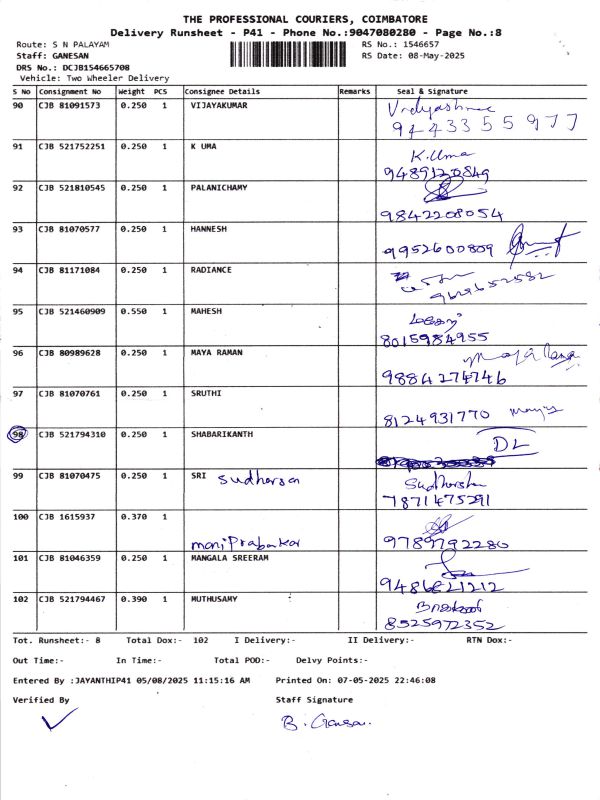 THE PROFESSIONAL COURIERS, COIMBATORE
Delivery Runsheet - P41 - Phone No.:9047080280 - Page No.:8
Route: S N PALAYAM RS No.: 1546657
Staff: GANESAN RS Date: 08-May-2025
DRS No.: DCJB154665708
Vehicle: Two Wheeler Delivery
S No Consignment No Weight PCS Consignee Details Remarks Seal & Signature
90 CJB 81091573 0.250 1 VIJAYAKUMAR Vidyashree
9443355977
91 CJB 521752251 0.250 1 K UMA K.Uma
9489120849
92 CJB 521810545 0.250 1 PALANICHAMY
9842208054
93 CJB 81070577 0.250 1 HANNESH
9952600809
94 CJB 81171084 0.250 1 RADIANCE
9629652582
95 CJB 521460909 0.550 1 MAHESH
8015984955
96 CJB 80989628 0.250 1 MAYA RAMAN Maya Raman
9884274746
97 CJB 81070761 0.250 1 SRUTHI
8124931770
98 CJB 521794310 0.250 1 SHABARIKANTH DL
99 CJB 81070475 0.250 1 SRI Sudharsan Sudharshan
7871475291
100 CJB 1615937 0.370 1
maniprabakar 9789792280
101 CJB 81046359 0.250 1 MANGALA SREERAM
9486621212
102 CJB 521794467 0.390 1 MUTHUSAMY
8525972352
Tot. Runsheet:- 8 Total Dox:- 102 I Delivery:- II Delivery:- RTN Dox:-
Out Time:- In Time:- Total POD:- Delvy Points:-
Entered By :JAYANTHIP41 05/08/2025 11:15:16 AM Printed On: 07-05-2025 22:46:08
Verified By Staff Signature
B. Ganesan.